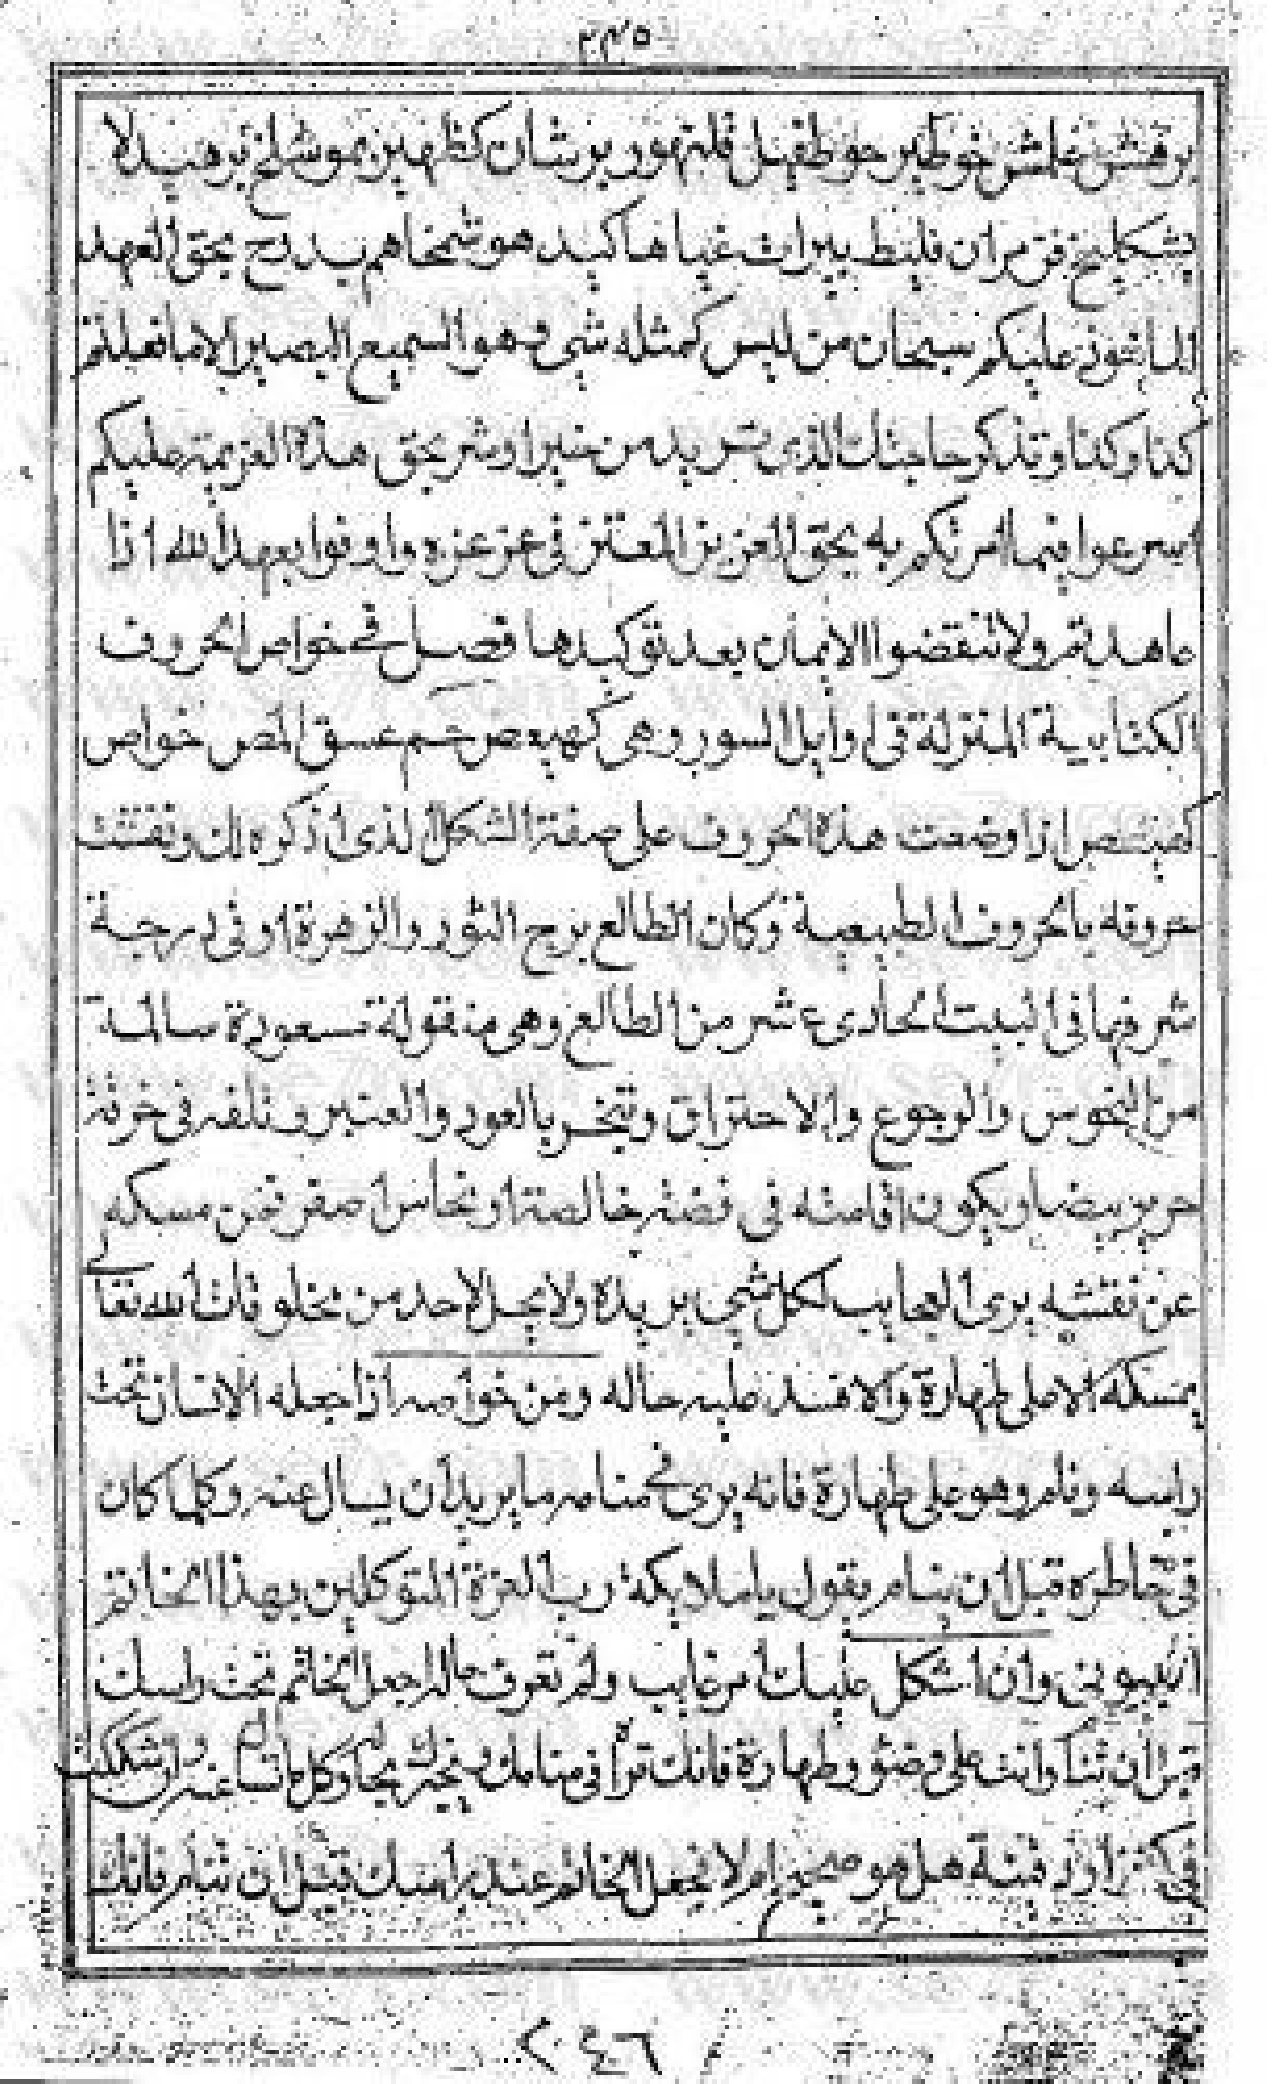 ٢٤٥
برهش غلمش خوطير قلنهود برشان كظهير نموشلخ برهيولا
بشكيلخ قزمز انغلليط قبرات غياها كيد هولا شمخاهر بحق العهد
الماخوذ عليكم سبحان من ليس كمثله شي وهو السميع البصير الا ما فعلتم
كذا وكذا وتذكر حاجتك الذي تريد من خير او شر بحق هذه العزيمة عليكم
اسرعوا فيما امرتكم به بحق العزيز المعتز في عز عزه واوفوا بعهد الله اذا
عاهدتم ولا تنقضوا الايمان بعد توكيدها فصل في خواص الحروف
الكتابية المنزلة في اوايل السور وهي كهيعص حم عسق المص خواص
كهيعص اذا وضعت هذه الحروف على صفة الشكل الذي اذكره لك ونقشت
حروفه بالحروف الطبيعية وكان الطالع برج الثور والزهرة او في درجة
شرفها في البيت الحادي عشر من الطالع وهي منقولة مسعودة سالمة
من النحوس والرجوع والاحتراق وتبخر بالعود والعنبر وتلفه في خرقة
حرير بيضا ويكون اقامته في فضة خالصة او نحاس اصفر فمن مسكه
عن نقشه يرى العجايب لكل شي يريده ولا يحل لاحد من مخلوقات الله تعالى
يمسكه الا على طهارة والا فسد عليه حاله ومن خواصه اذا جعله الانسان تحت
راسه ونام وهو على طهارة فانه يرى في منامه ما يريد ان يسال عنه وكلما كان
في خاطره قبل ان ينام يقول يا ملايكة رب العزة المتوكلين بهذا الخاتم
انبيوني وان اشكل عليك امر غايب ولم تعرف حاله اجعل الخاتم تحت راسك
قبل ان تنام وانت على وضوء وطهارة فانك تراه في منامك ويخبرك بحاله وكل ما تسال عنه وان شككت
في كنز او دفينة هل هو صحيح ام لا تجعل الخاتم عند راسك قبل ان تنام فانك
٢٤٦